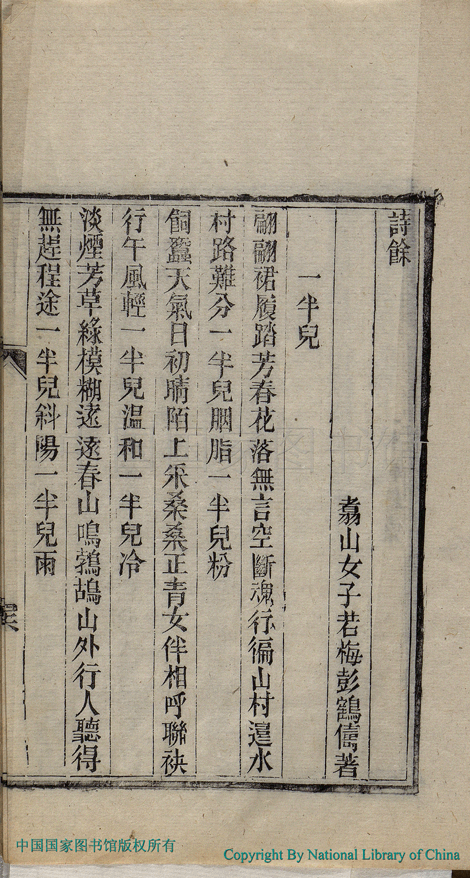 詩餘
翥山女子若梅彭鶴儔著
一半兒
翩翩裙屐踏芳春花落無言空斷魂行徧山村還水
村路難分一半兒胭脂一半兒粉
飼蠶天氣日初晴陌上采桑桑正青女伴相呼聯袂
行午風輕一半兒溫和一半兒冷
淡煙芳草綠模糊遠遠春山鳴鵓鴣山外行人聽得
無趕程途一半兒斜陽一半兒雨
中国国家图书馆版权所有
Copyright By National Library of China